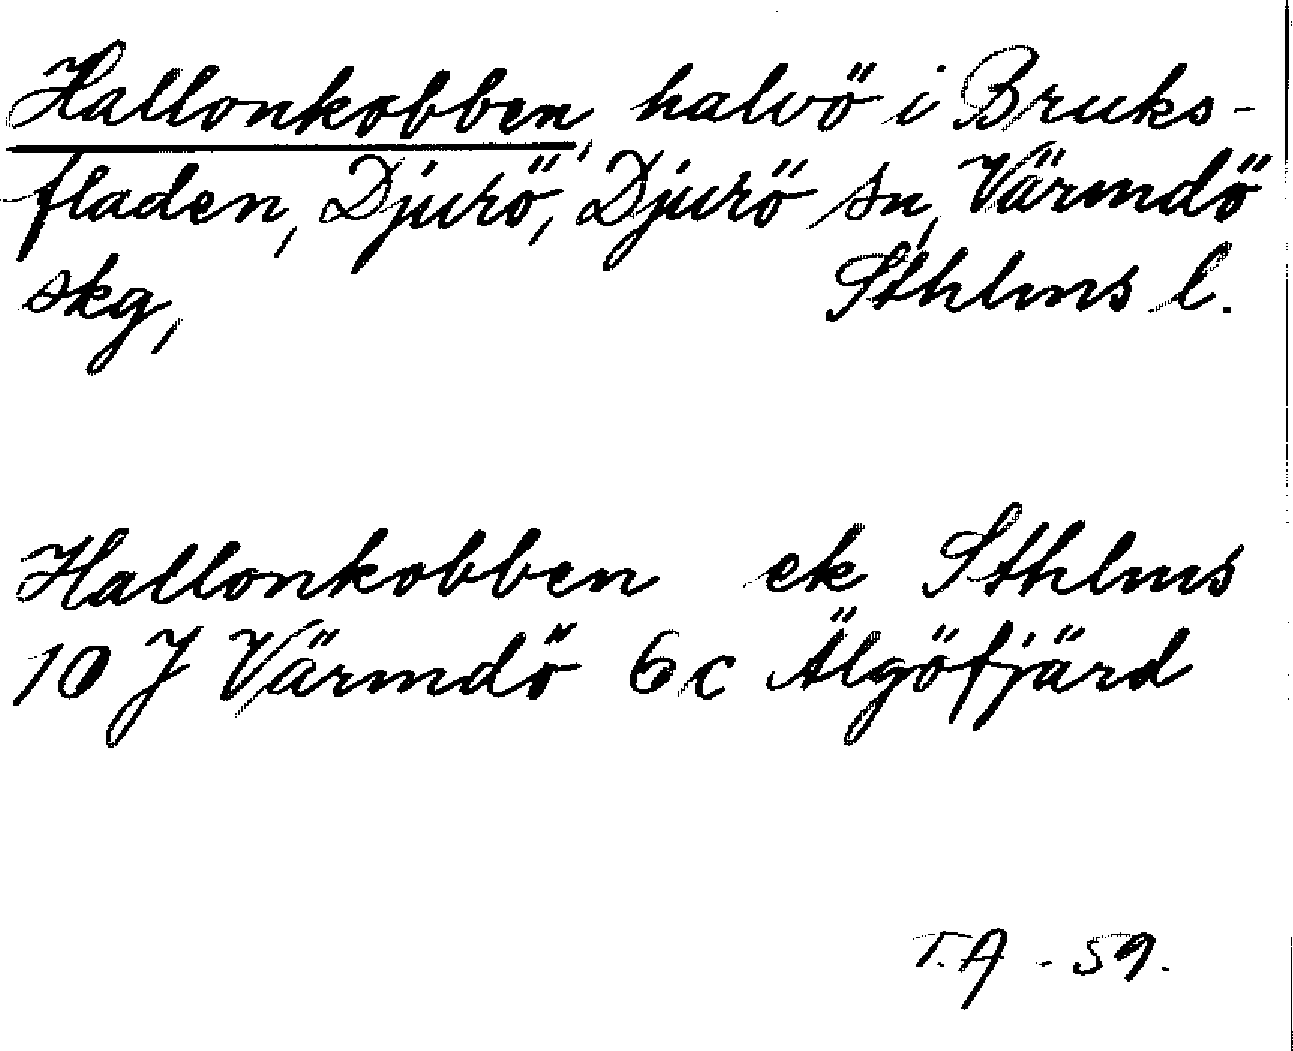 Hallonkobben, halvö i Bruks-
fladen, Djurö, Djurö sn, Värmdö
skg, Sthlms l.
Hallonkobben ek Sthlms
10 J Värmdö 6 c Älgöfjärd
T.A - 59.